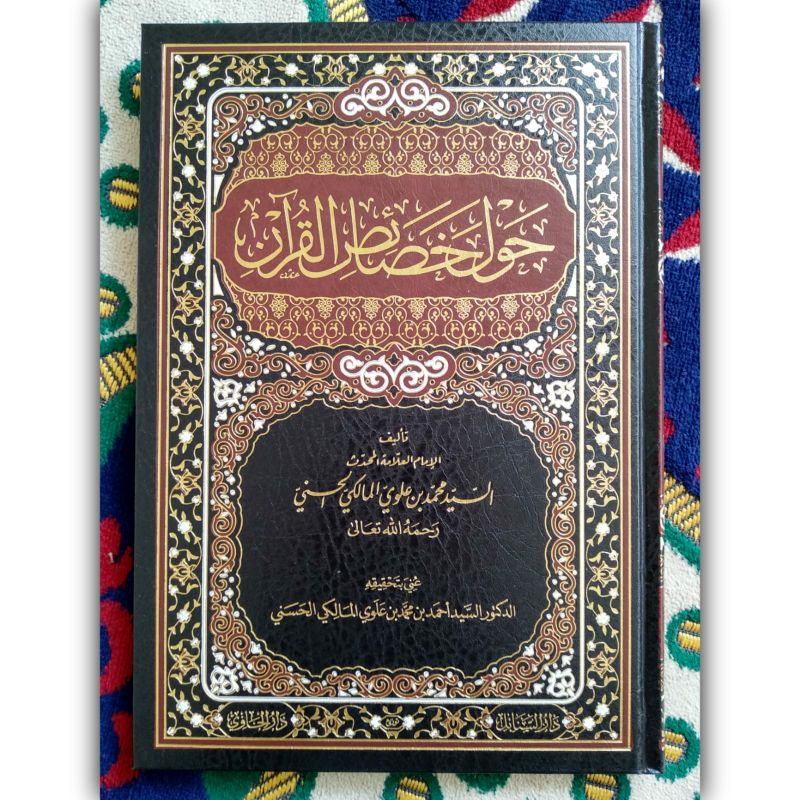 حَوْلَ خَصَائِصِ القُرْآنِ
تأليف
الإمام العلامة المحدّث
السيّد محمّد بن علوي المالكي الحسنيّ
رحمه الله تعالى
عُني بتحقيقه
الدكتور السيّد أحمد بن محمّد بن علوي المالكي الحسني
دار السنابل